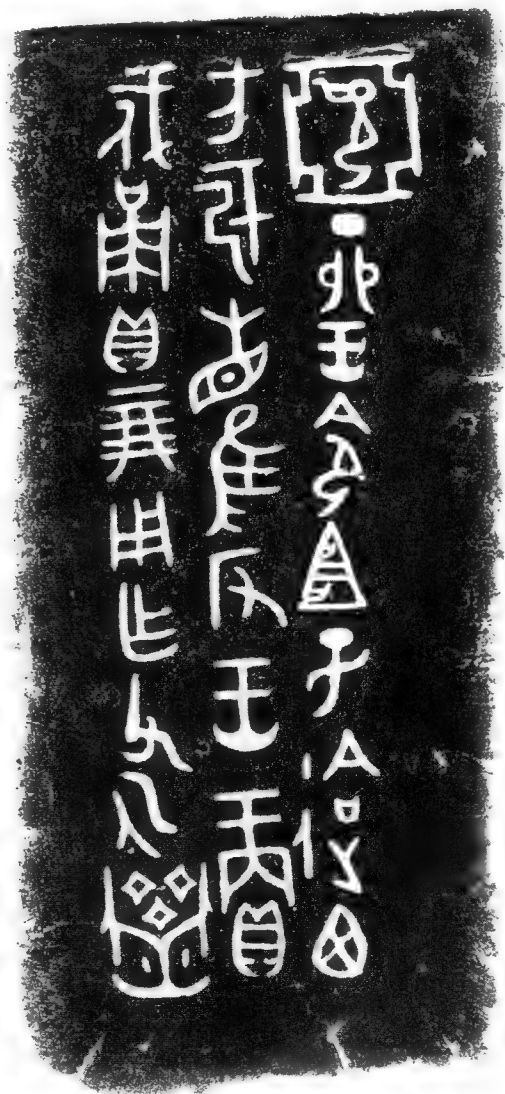 亞丁卯王令宜子迨西
方于省隹反王賞
戍甬貝二朋用乍父乙齋